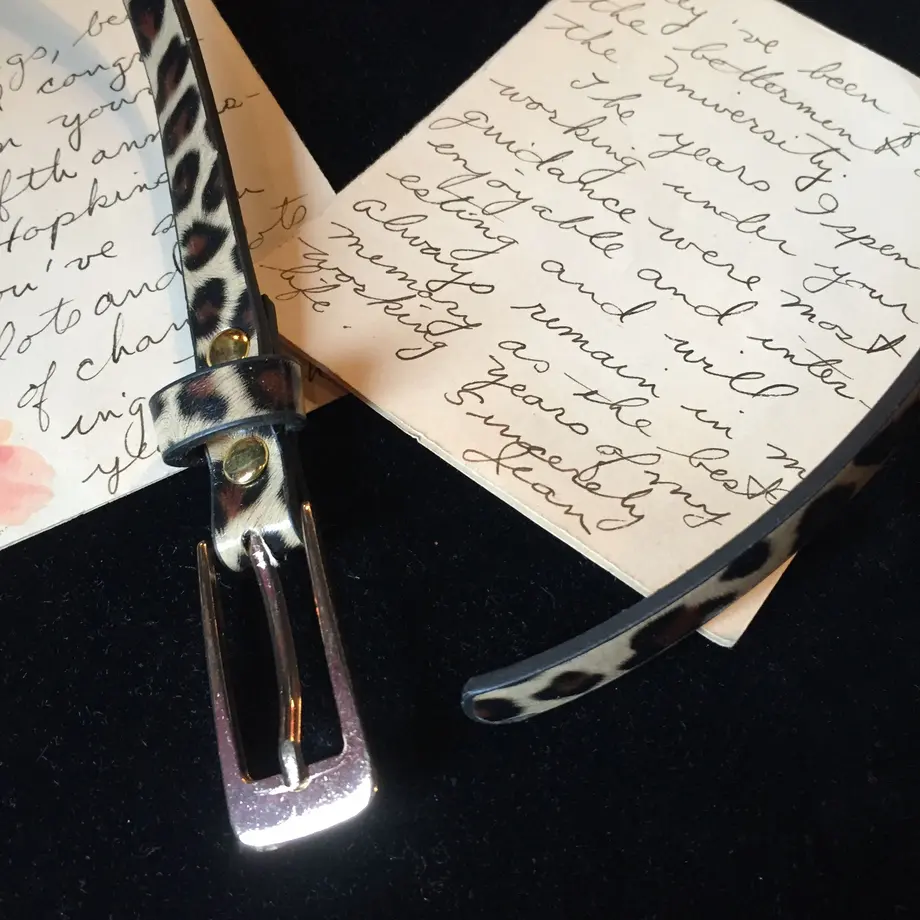 gs, be
congr
n your
fth anni s-
Hopkins
ou've
lots and lots
of chan
ing
ye
life.
ly I've been
the betterment
the University.
The years I spen
working under your
guidance were most
enjoyable and inter-
esting and will
always remain in m
memory as the best
working years of my
Sincerely
Jean